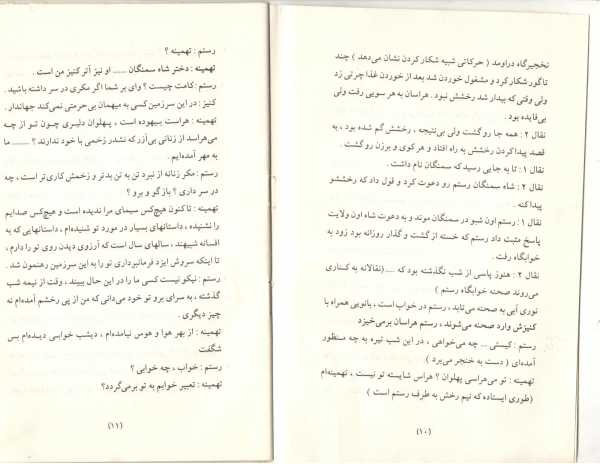 نخجیرگاه دراومد ( حرکاتی شبیه شکار کردن نشان می‌دهد ) چند
تا گور شکار کرد و مشغول خوردن شد بعد از خوردن غذا چرتی زد
ولی وقتی که بیدار شد رخشش نبود. هراسان به هر سویی رفت ولی
بی‌فایده بود .
نقال ۲ : همه جا رو گشت ولی بی‌نتیجه ، رخشش گم شده بود ، به
قصد پیدا کردن رخشش به راه افتاد و هر کوی و برزن رو گشت .
نقال ۱ : تا به جایی رسید که سمنگان نام داشت .
نقال ۲ : شاه سمنگان رستم رو دعوت کرد و قول داد که رخششو
پیدا کنه .
نقال ۱ : رستم اون شبو در سمنگان موند و به دعوت شاه اون ولایت
پاسخ مثبت داد رستم که خسته از گشت و گذار روزانه بود زود به
خوابگاه رفت .
نقال ۲ : هنوز پاسی از شب نگذشته بود که .... (نقالانه به کناری
می‌روند صحنه خوابگاه رستم )
نوری آبی به صحنه می‌تابد، رستم در خواب است ، بانویی همراه با
کنیزش وارد صحنه می‌شوند، رستم هراسان برمی‌خیزد
رستم : کیستی ... چه می‌خواهی ، در این شب تیره به چه منظور
آمده‌ای ( دست به خنجر می‌برد )
تهمینه : تو می‌هراسی پهلوان ؟ هراس شایسته تو نیست ، تهمینه‌ام
(طوری ایستاده که نیم رخش به طرف رستم است )
(۱۰)
رستم : تهمینه ؟
تهمینه : دختر شاه سمنگان ...... او نیز آذر کنیز من است .
رستم : کامت چیست ؟ وای بر شما اگر مکری در سر داشته باشید .
کنیز : در این سرزمین کسی به میهمان بی‌حرمتی نمی‌کند جهاندار .
تهمینه : هراست بیهوده است ، پهلوان دلیری چون تو از چه
می‌هراسد از زنانی بی‌آزر که نشدر زخمی با خود ندارند ؟ ........ ما
به مهر آمده‌ایم .
رستم : مکر زنانه از نبرد تن به تن بدتر و زخمش کاری‌تر است ، چه
در سر داری ؟ بازگو و برو ؟
تهمینه : تا کنون هیچ‌کس سیمای مرا ندیده است و هیچ‌کس صدایم
را نشنیده ، داستانهای بسیار در مورد تو شنیده‌ام ، داستانهایی که به
افسانه شبیهند ، سالهای سال است که آرزوی دیدن روی تو را دارم ،
تا اینکه سروش ایزد فرمانبرداری تو را به این سرزمین رهنمون شد .
رستم : نیکو نیست کسی ما را در این حال ببیند ، وقت از نیمه شب
گذشته ، به سرای برو تو خود می‌دانی که من از پی رخشم آمده‌ام نه
چیز دیگری .
تهمینه : از بهر هوا و هوس نیامده‌ام ، دیشب خوابی دیده‌ام بس
شگفت
رستم : خواب ، چه خوابی ؟
تهمینه : تعبیر خوابم به تو برمی‌گردد؟
(۱۱)